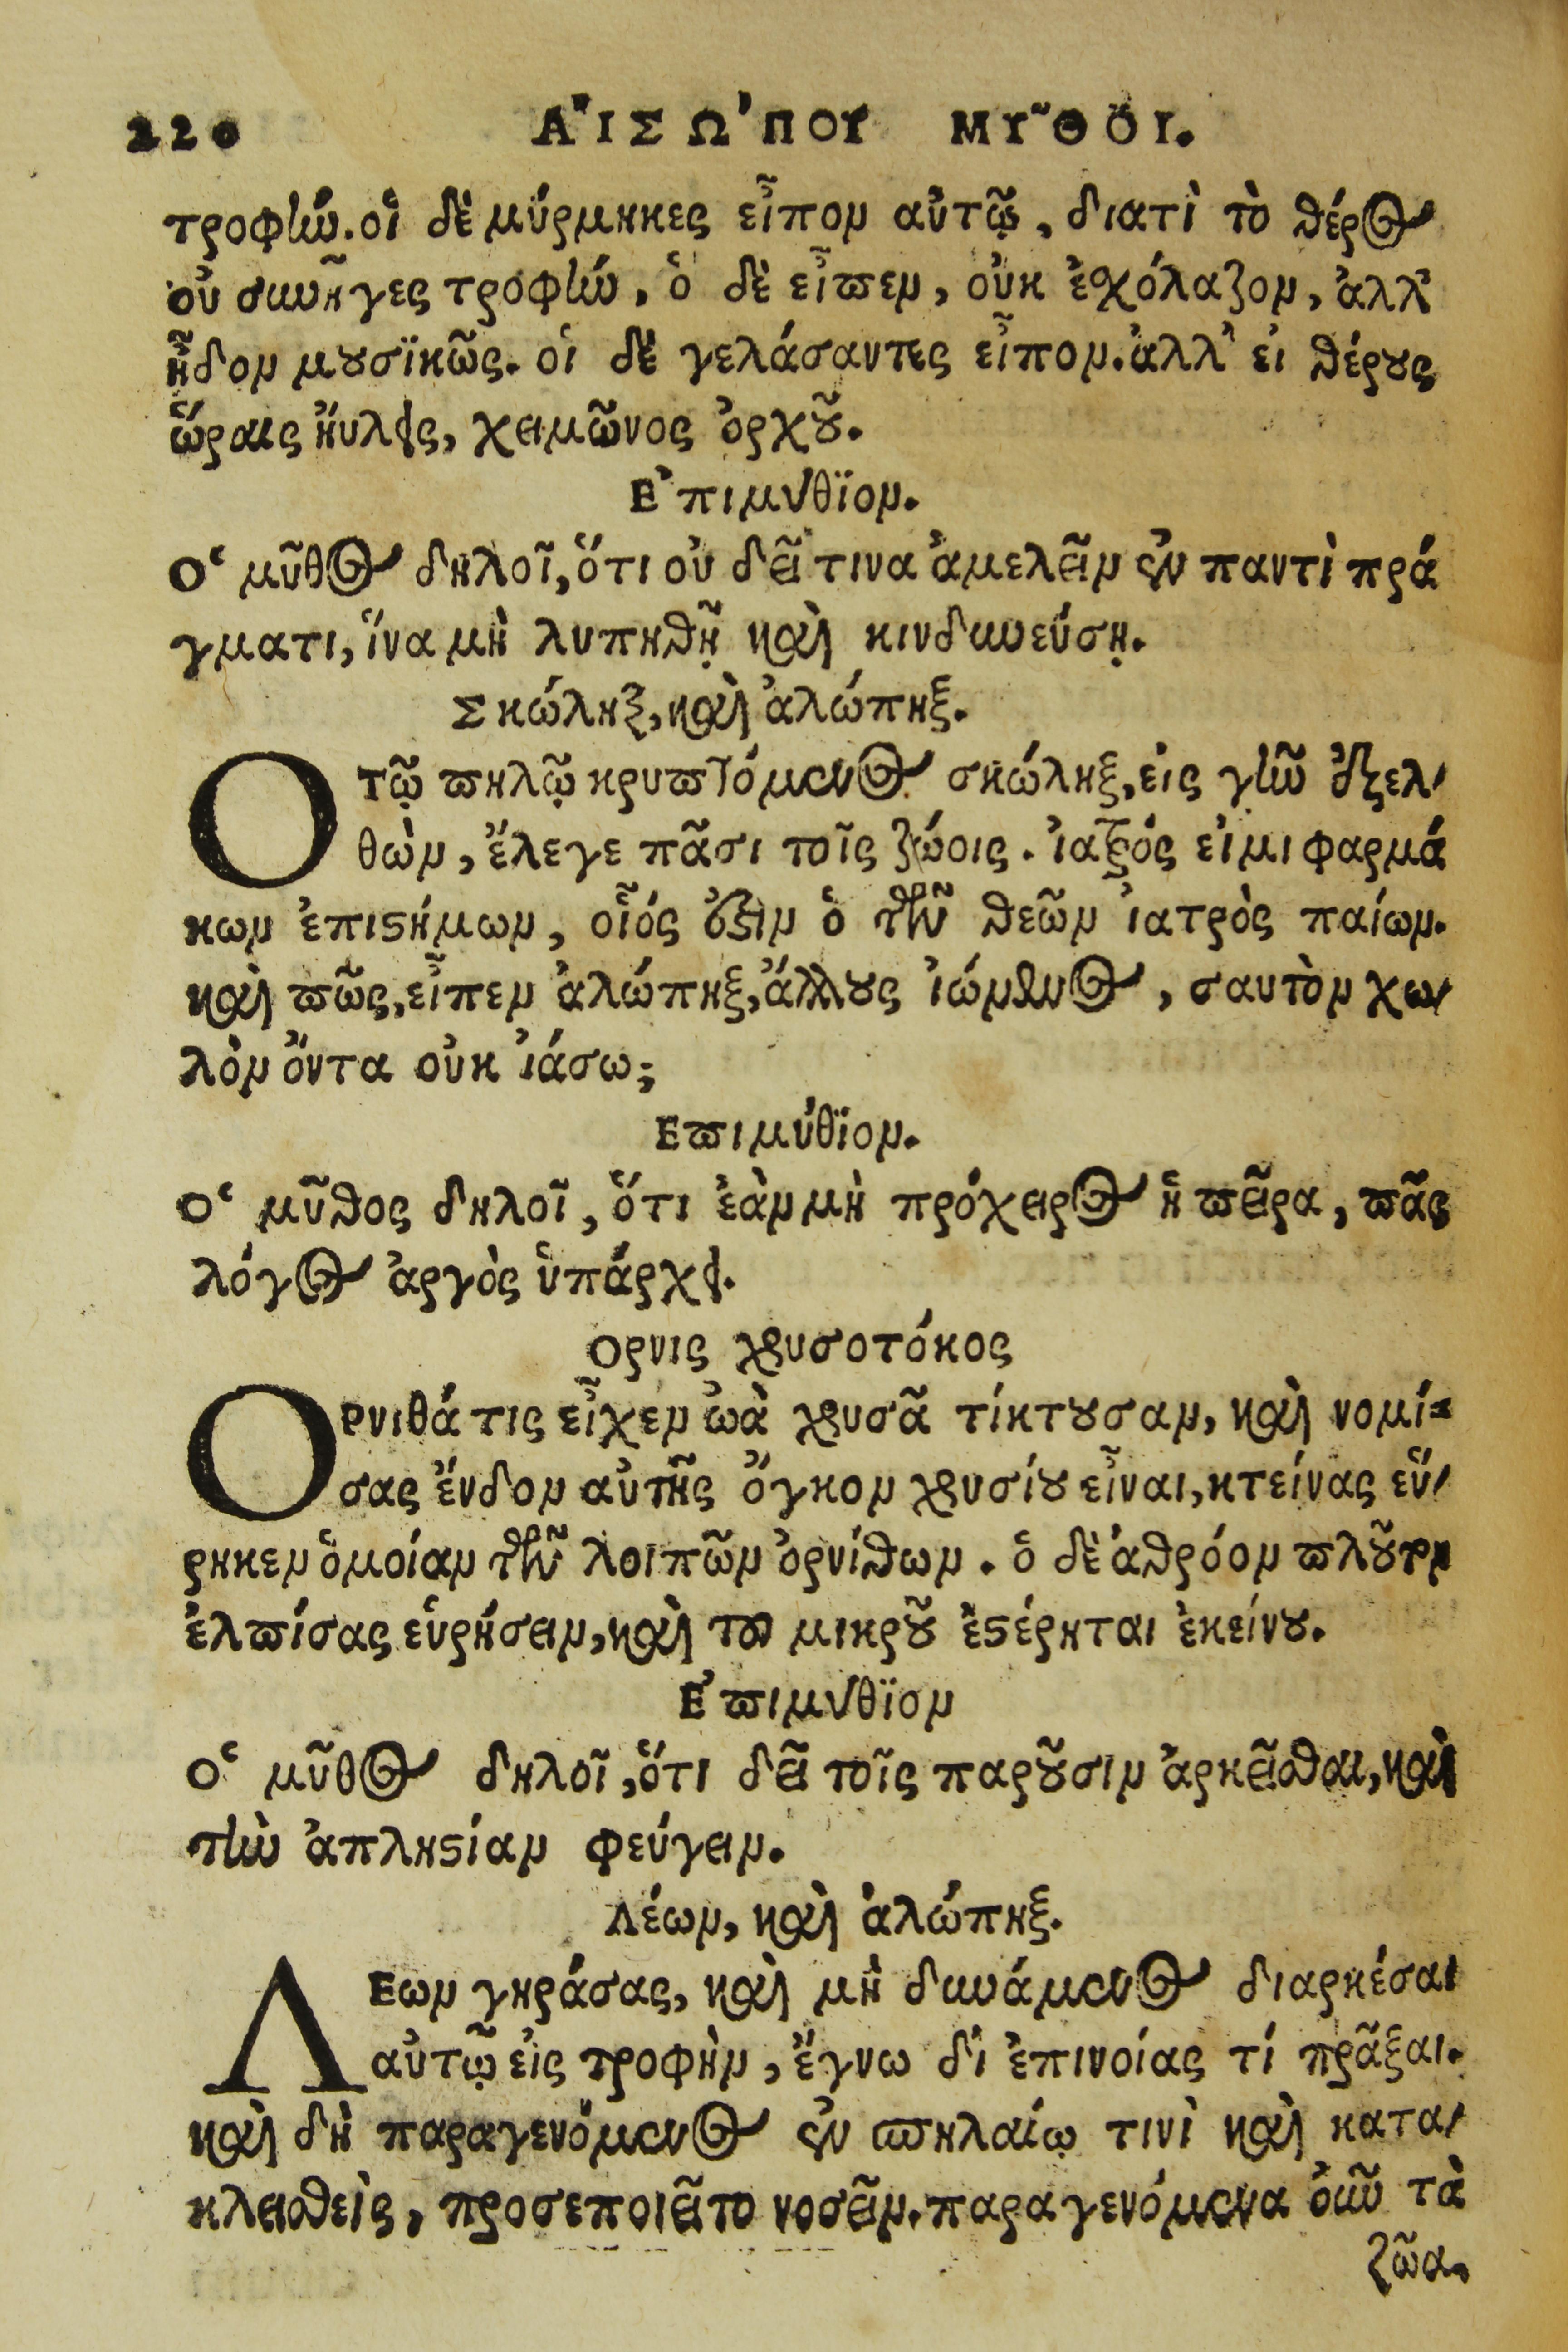 220 ΑἸΣΩ'ΠΟΥ ΜΥ͂ΘΟΙ.
τροφὴν. οἱ δὲ μύρμηκες εἶπον αὐτῷ, διατὶ τὸ θέρος
οὐ συνῆγες τροφὴν, ὁ δὲ εἶπεν, οὐκ ἐσχόλαζον, ἀλλ'
ᾖδον μουσϊκῶς. οἱ δὲ γελάσαντες εἶπον. ἀλλ' εἰ θέρους
ὥραις ἤυλεις, χειμῶνος ὀρχοῦ.
Ε'πιμύθϊον.
Ο῾ μῦθος δηλοῖ, ὅτι οὐ δεῖ τινα ἀμελεῖν ἐν παντὶ πρά
γματι, ἵνα μὴ λυπηθῇ καὶ κινδυνεύσῃ.
Σκώληξ, καὶ ἀλώπηξ.
Ο τῷ πηλῷ κρυπτόμενος σκώληξ, εἰς γῆν ἐξελ-
θὼν, ἔλεγε πᾶσι τοῖς ζώοις. ἰατρός εἰμι φαρμά
κων ἐπιστήμων, οἷός ἐστιν ὁ τῶν θεῶν ἰατρὸς παίων.
καὶ πῶς, εἶπεν ἀλώπηξ, ἄλλους ἰώμενος, σαυτὸν χω-
λὸν ὄντα οὐκ ἰάσω;
Επιμύθϊον.
Ο῾ μῦθος δηλοῖ, ὅτι ἐὰν μὴ πρόχειρος ἡ πεῖρα, πᾶς
λόγος ἀργὸς ὑπάρχει.
Ορνις χρυσοτόκος
ΟΡνιθά τις εἶχεν ὠὰ χρυσᾶ τίκτουσαν, καὶ νομί-
σας ἔνδον αὐτῆς ὄγκον χρυσίου εἶναι, κτείνας εὕ-
ρηκεν ὁμοίαν τῶν λοιπῶν ὀρνίθων. ὁ δὲ ἀθρόον πλοῦτον
ἐλπίσας εὑρήσειν, καὶ τοῦ μικροῦ ἐστέρηται ἐκείνου.
Ε'πιμύθϊον
Ο῾ μῦθος δηλοῖ, ὅτι δεῖ τοῖς παροῦσιν ἀρκεῖσθαι, καὶ
τὴν ἀπληστίαν φεύγειν.
Λέων, καὶ ἀλώπηξ.
ΛΕων γηράσας, καὶ μὴ δυνάμενος διαρκέσαι
αὐτῷ εἰς τροφὴν, ἔγνω δἰ ἐπινοίας τί πρᾶξαι.
καὶ δὴ παραγενόμενος ἐν σπηλαίῳ τινὶ καὶ κατα-
κλεισθεὶς, προσεποιεῖτο νοσεῖν. παραγενόμενα οὖν τὰ
ζῶα,